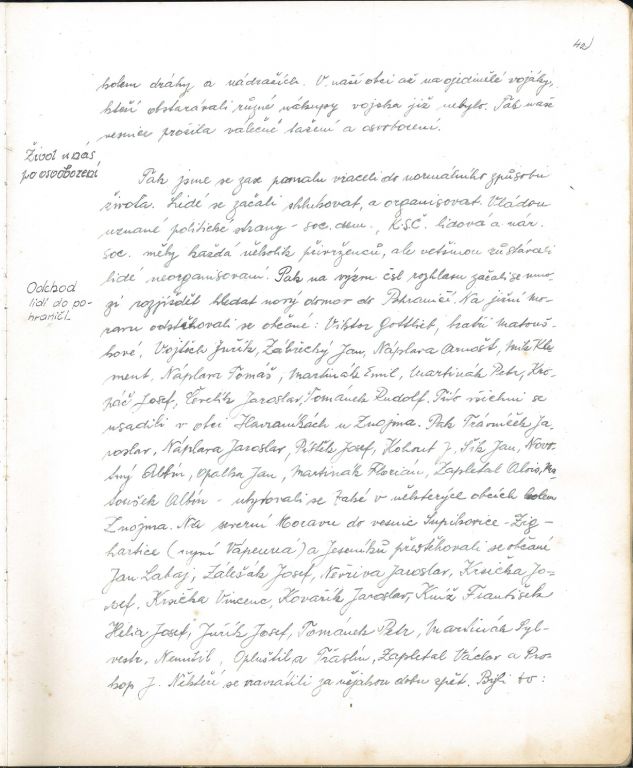 42)
kolem dráhy a nádražích. V naší obci až na ojedinělé vojáky,
kteří obstarávali různé nákupy vojska již nebylo. Tak naše
vesnice prožila válečné tažení a osvobození.
Život u nás
po osvobození
Pak jsme se zase pomalu vraceli do normálního způsobu
života. Lidé se začali shlukovat, a organisovat. Vládou
uznané politické strany - soc. dem., K.S.Č. lidová a nár.
soc. měly každá několik přívrženců, ale většinou zůstávali
lidé neorganisovaní. Pak na výzvu čsl rozhlasu začali se mno-
Odchod
lidí do po-
hraničí.
zí rozjíždět hledat nový domov do Pohraničí. Na jižní Mo-
ravu odstěhovali se občané: Viktor Gottlieb, bratří Matouš-
kové, Vojtěch Juřík, Zábřecký Jan, Náplava Arnošt, Mik Kle-
ment, Náplava Tomáš, Martinák Emil, Martinák Petr, Kro-
páč Josef, Jaroslav, Tománek Rudolf. Tito všichni se
usadili v obci Havraníkách u Znojma. Pak Trávníček Ja-
roslav, Náplava Jaroslav, Josef, Kohout J. Šik Jan, Novo-
tný Albín, Opálka Jan, Martinák Florián, Zapletal Alois, Ma-
toušek Albín - ubytovali se také v některých obcích kolem
Znojma. Na severní Moravu do vesnic Supíkovice - Žig-
hartice (nyní Vápenná) a Jeseníků přestěhovali se občané
Jan Labaj, Zálešák Josef, Nevřiva Jaroslav, Krsička Jo-
sef, Krsička Vincenc, Kovařík Jaroslav, Kníž František
Hélia Josef, Juřík Josef, Tománek Petr, Martinák Syl-
vestr, Nenutil, Opluštil a Trástín, Zapletal Václav a Pro-
kop J. Někteří se navrátili za nějakou dobu zpět. Byli to: